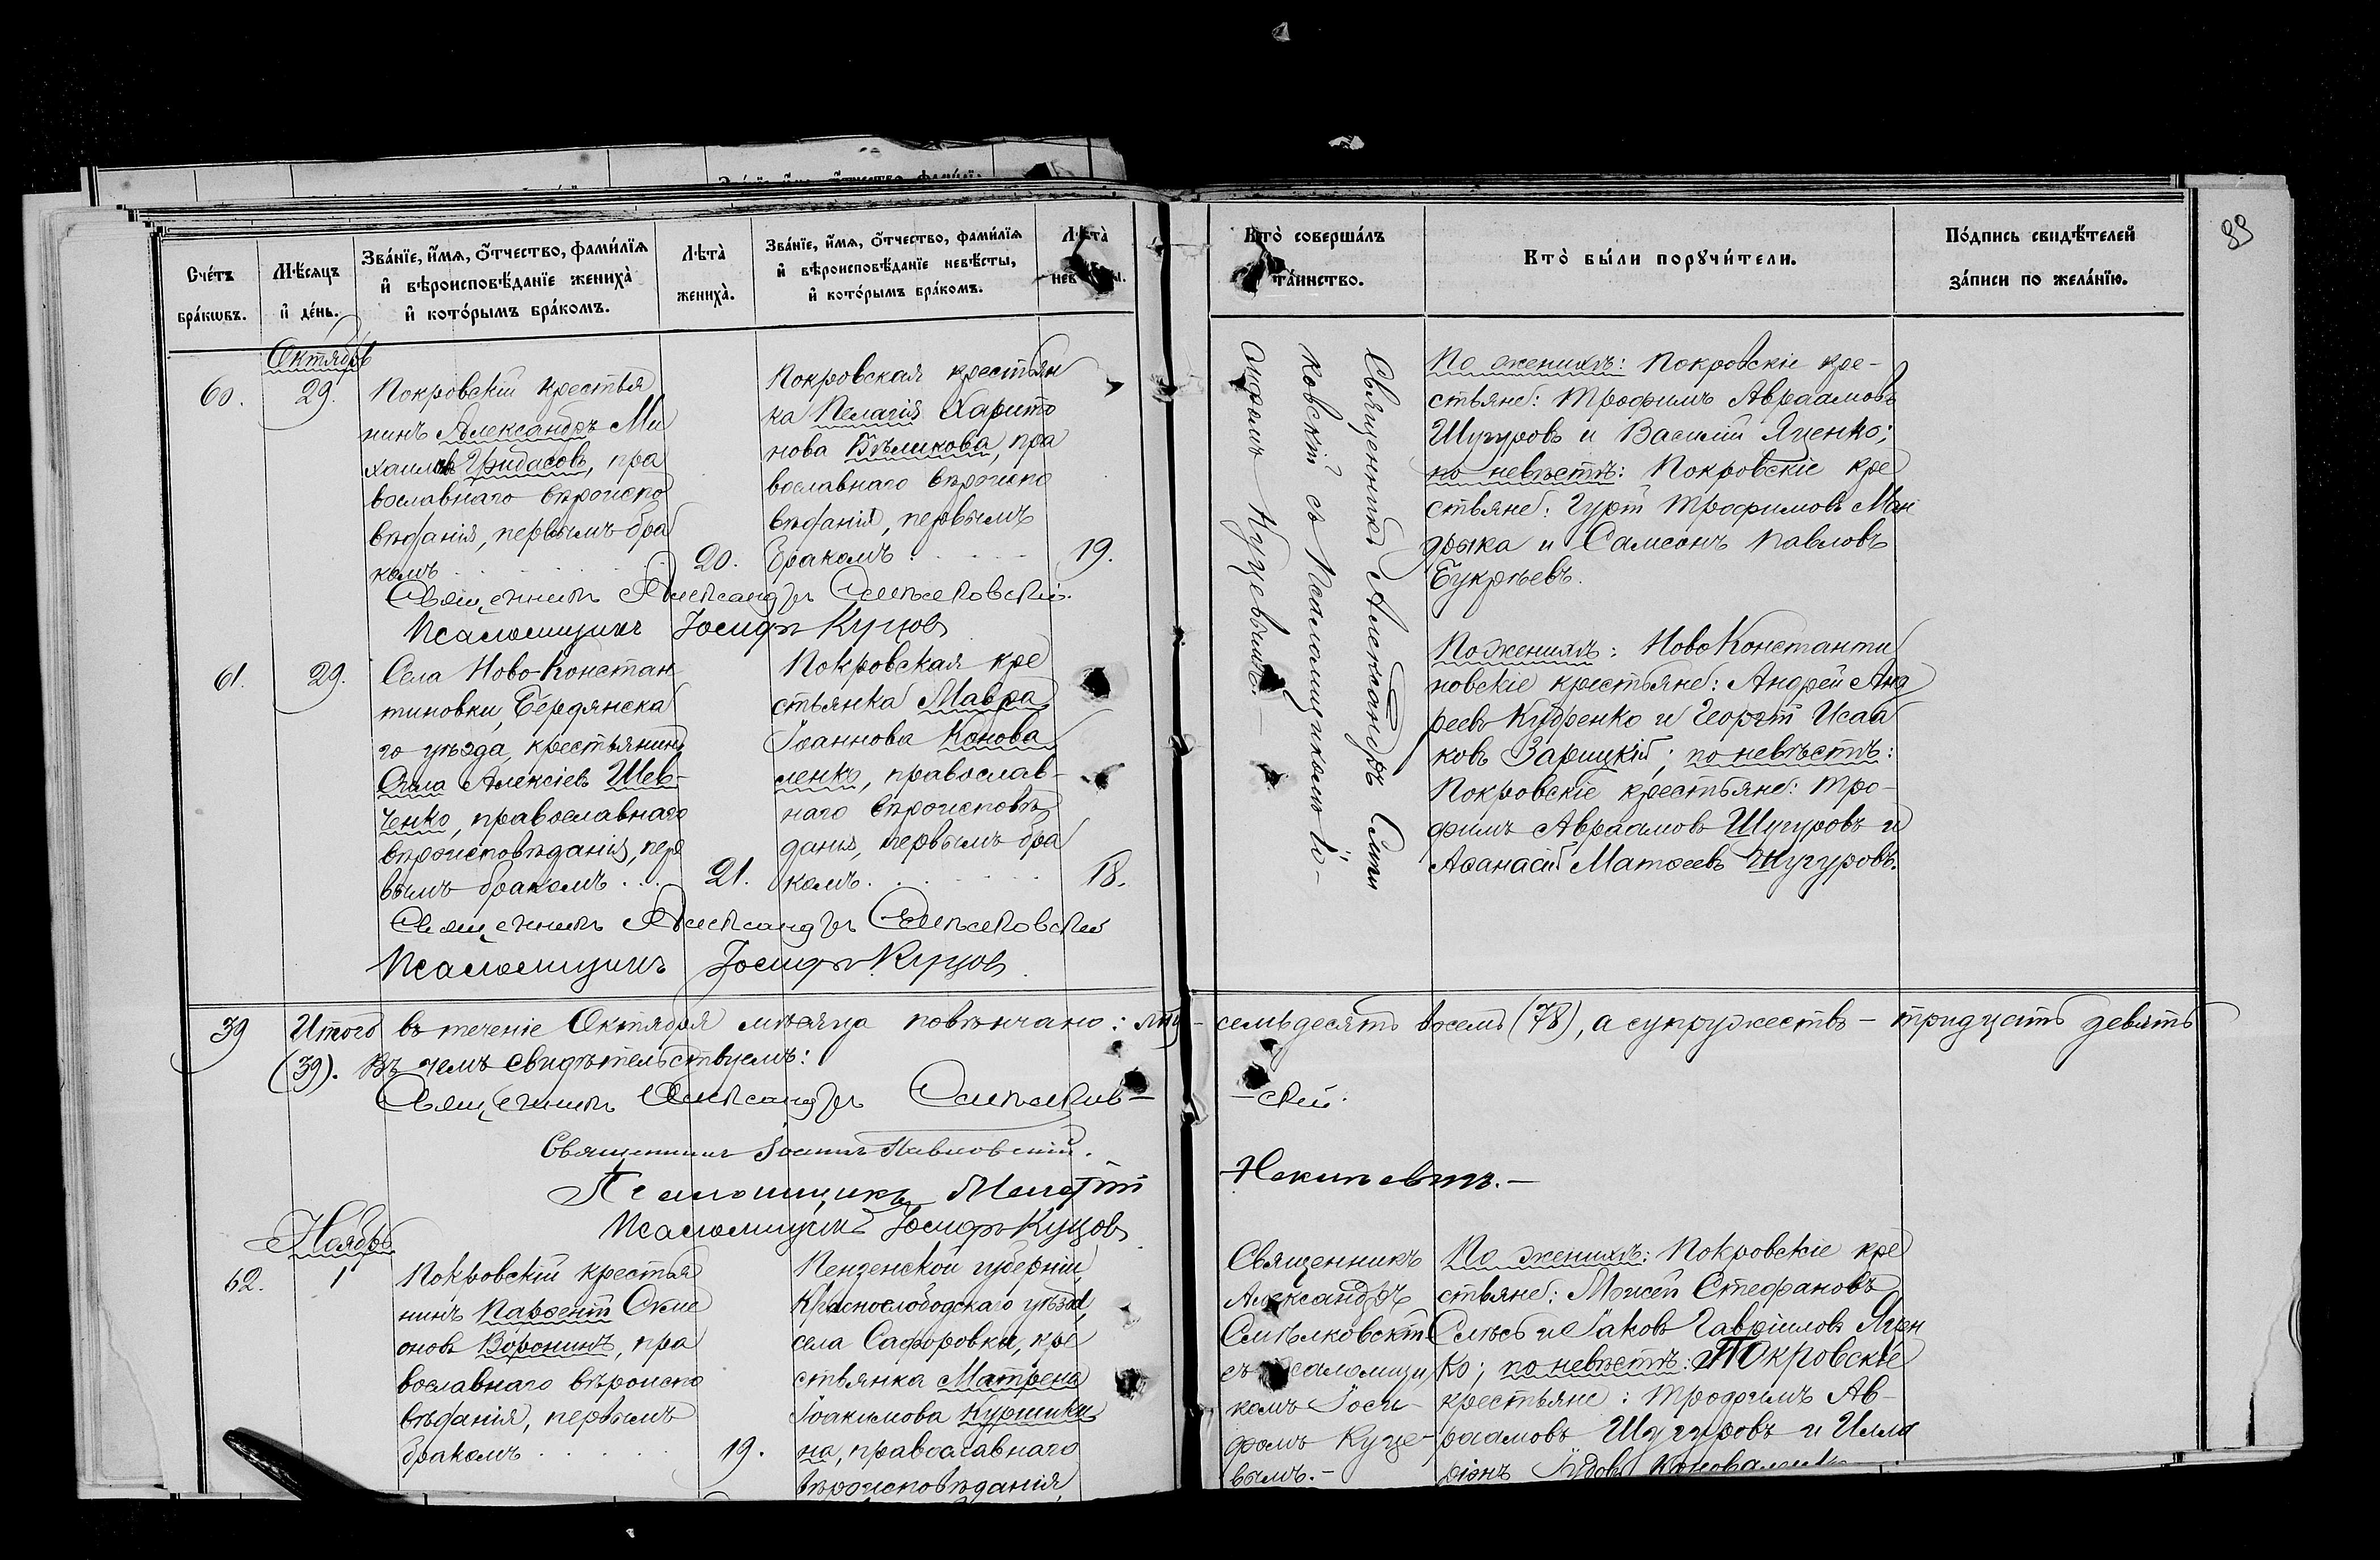 Зва́нїе, и҆́мѧ, ѻ҆́тчество, фами́лїѧ
33
Сче́тъ бра́кѡвъ.
Мѣ́сѧцъ и҆ де́нь.
Зва́нїе, и҆́мѧ, ѻ҆́тчество, фами́лїѧ
и҆ вѣроисповѣ́данїе жениха̀
и҆ кото́рымъ бра́комъ.
Лѣта̀ жениха̀.
Зва́нїе, и҆́мѧ, ѻ҆́тчество, фами́лїѧ
и҆ вѣроисповѣ́данїе невѣ́сты,
и҆ кото́рымъ бра́комъ.
Лѣта̀
Кто̀ соверша́лъ
та́инство.
Кто̀ бы́ли порꙋчи́тели.
По́дпись свидѣ́телей
за́писи по жела́нїю.
Октябрь
60.
29.
Покровскій крестья
нинъ Александръ Ми
хаиловъ, пра
вославнаго вѣроиспо
вѣданія, первымъ бра
комъ
20.
Покровская крестьян
ка Пелагія Харито
нова Бѣликова, пра
вославнаго вѣроиспо
вѣданія, первымъ
бракомъ
19.
Священникъ Александръ Смѣлковскій.
Псаломщикъ Іосифъ Куцовъ
Священникъ Александръ Смѣл
ковскій съ Псаломщикомъ Іо-
сифомъ Куцевымъ. —
По женихѣ: Покровскіе кре-
стьяне: Трофимъ Авраамовъ
Шугуровъ и Василій Яценко;
по невѣстѣ: Покровскіе кре
стьяне: Гурій Трофимовъ Ман
дрыка и Самсонъ Павловъ
Букрѣевъ.
61.
29.
Села Ново-Констан
тиновки, Бердянска
го уѣзда, крестьянинъ
Сила Алексіевъ Шев-
ченко, православнаго
вѣроисповѣданія, пер
вымъ бракомъ
21.
Покровская кре
стьянка Мавра
Іоаннова Конова
ленко, православ-
наго вѣроисповѣ
данія, первымъ бра
комъ
18.
Священникъ Александръ Смѣлковскій
Псаломщикъ Іосифъ Куцовъ
По женихѣ: Ново Константи
новскіе крестьяне: Андрей Анд
реевъ Кудренко и Георгій Исаа
ковъ Зарицкій; по невѣстѣ:
Покровскіе крестьяне: Тро-
фимъ Авраамовъ Шугуровъ и
Аѳанасій Матѳеевъ Шугуровъ.
39 Итого въ теченіе Октября мѣсяца повѣнчано: лиц- семьдесятъ восемь (78), а супружествъ — тридцать девять
(39). Въ чемъ свидѣтельствуемъ:
Священникъ Александръ Смѣлков- -скій.
Священникъ Іоаннъ Павловскій.
Псаломщикъ Мелетій
Псаломщикъ Іосифъ Куцовъ
Ноябрь
62.
1
Покровскій крестья
нинъ Парѳеній Симе
оновъ Воронинъ, пра
вославнаго вѣроиспо
вѣданія, первымъ
бракомъ
19.
Пензенской губерніи,
Краснослободскаго уѣзда,
села Сафоровки, кре
стьянка Матрена
Іоакимова Куршики
на, православнаго
вѣроисповѣданія,
Священникъ
Александръ
Смѣлковскій
съ Псаломщи
комъ Іоси-
фомъ Куце-
вымъ. —
По женихѣ: Покровскіе кре
стьяне: Моисей Стефановъ
и Іаковъ Гавріиловъ Яцен
ко; по невѣстѣ: Покровскіе
крестьяне: Трофимъ Ав-
раамовъ Шугуровъ и Илла
ріонъ Коноваленко